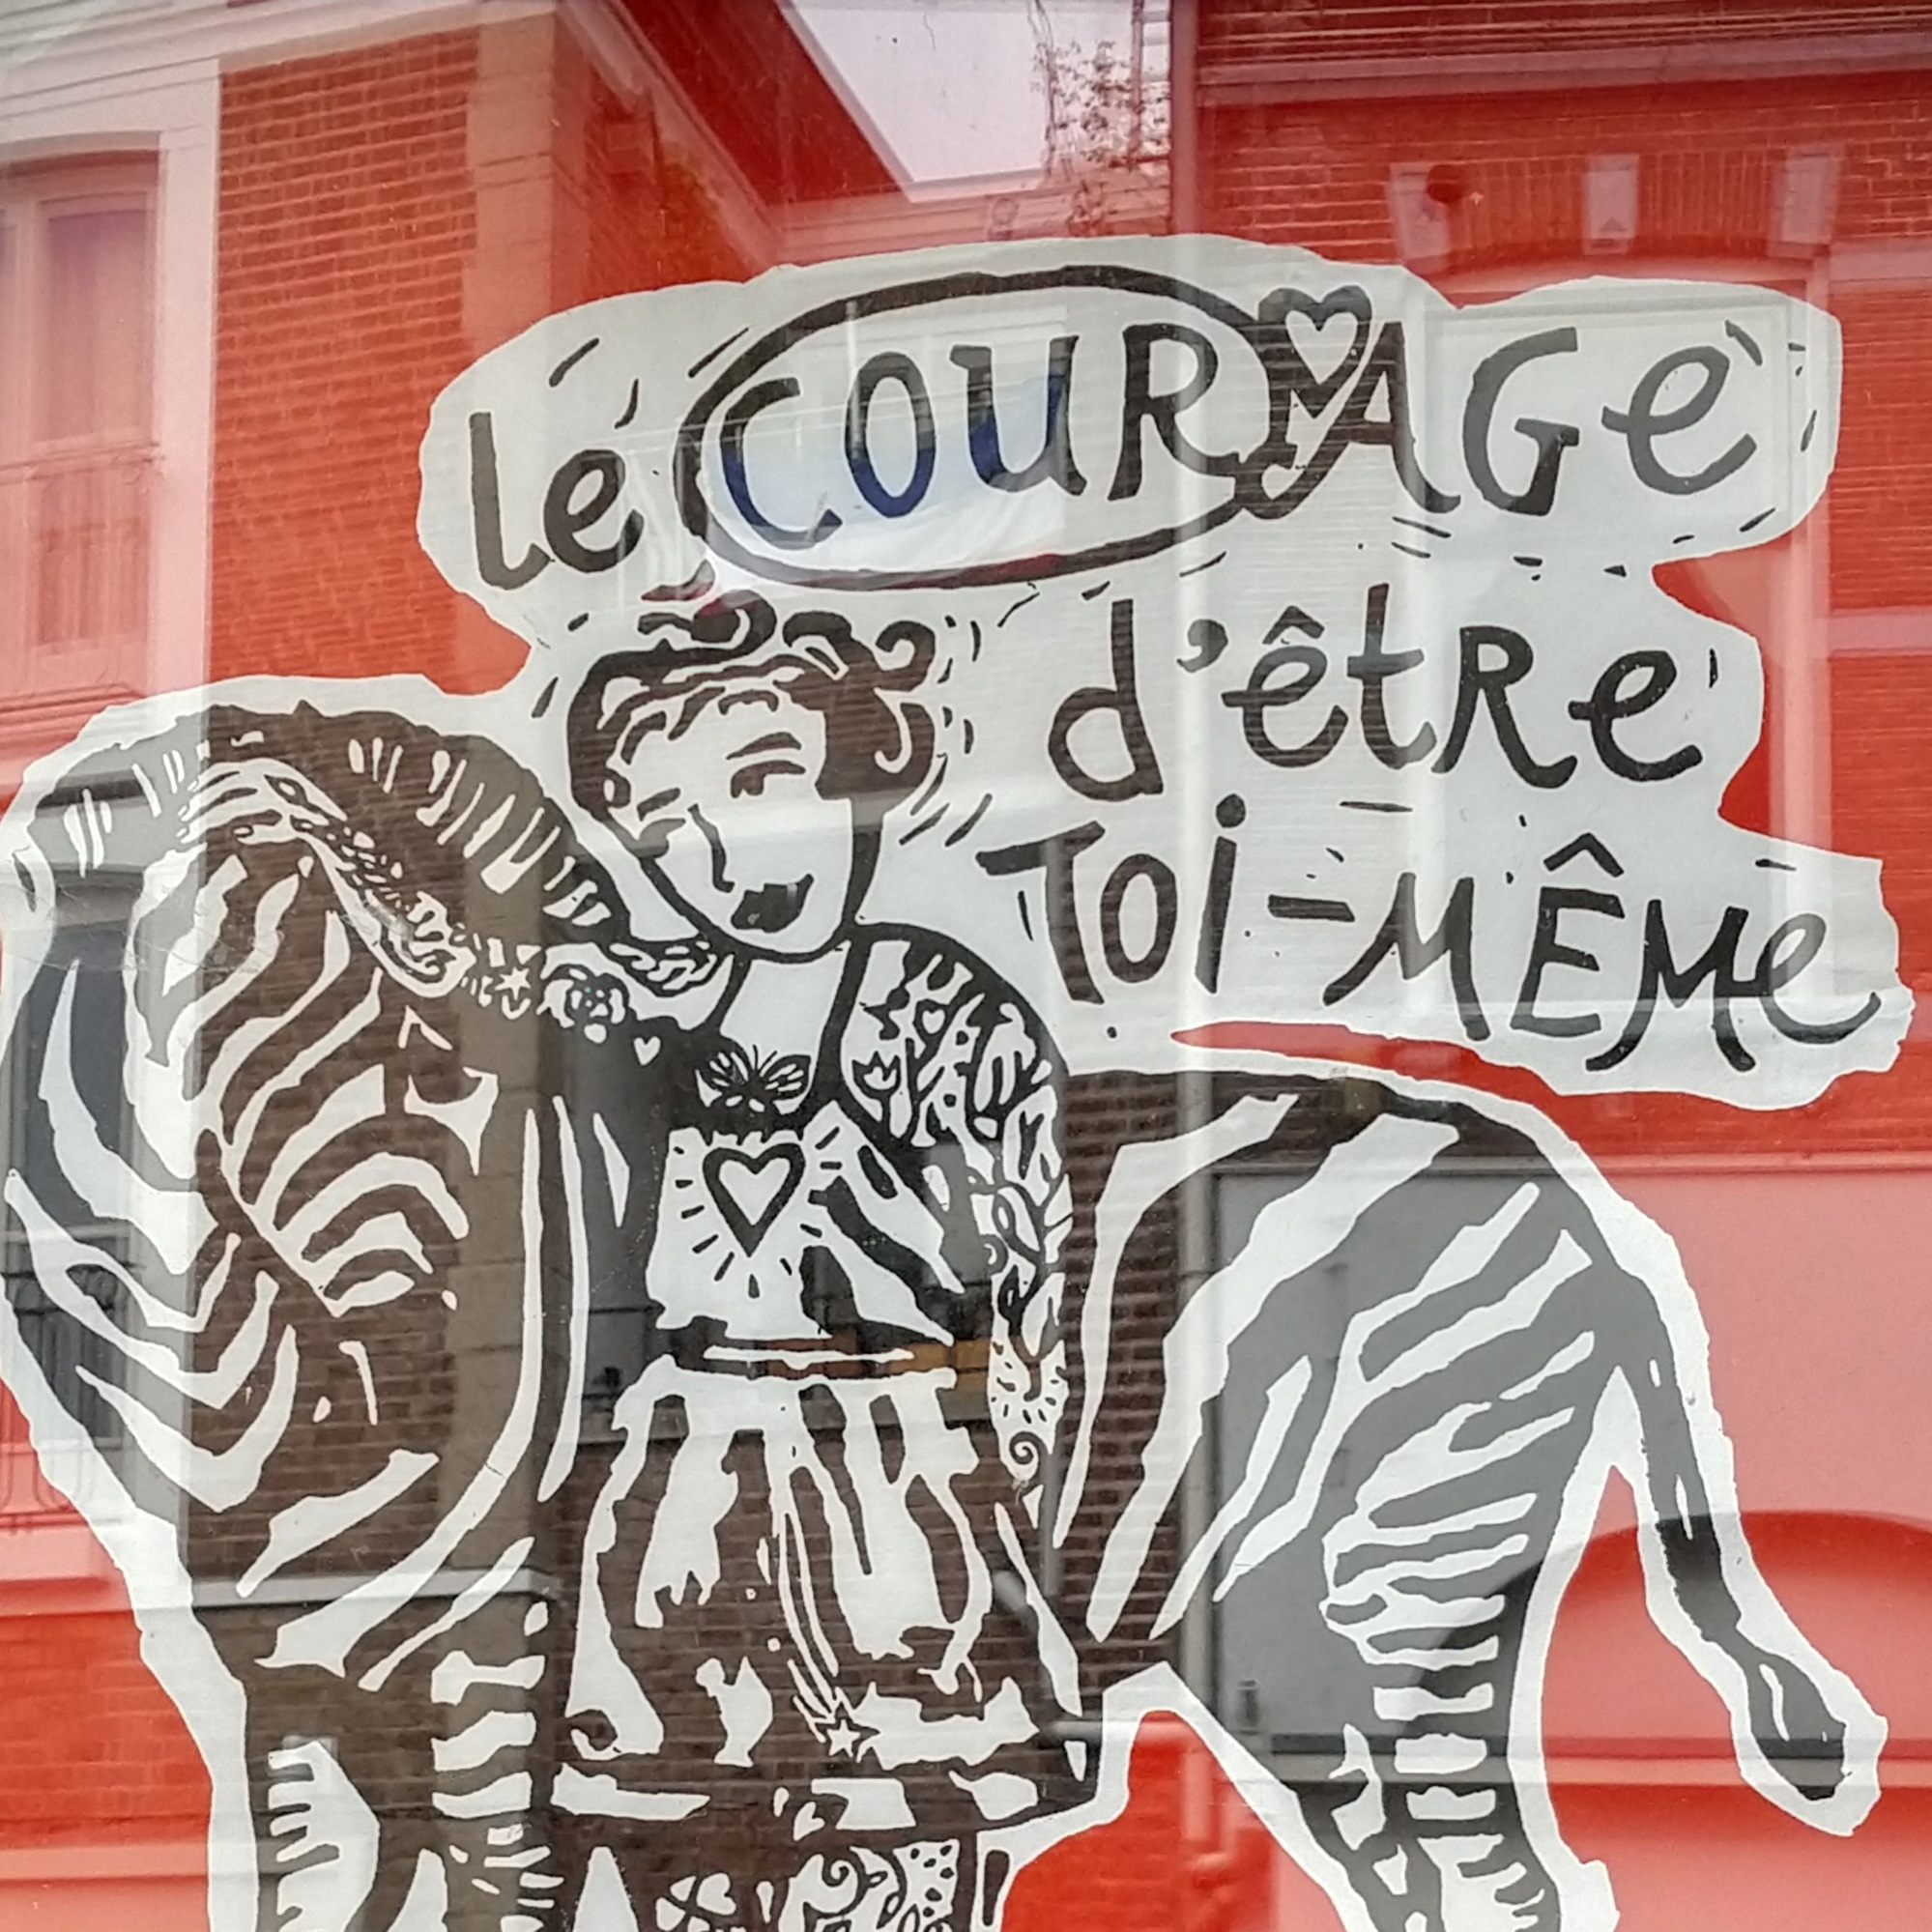 le COURAGE
d'être
Toi-MÊMe